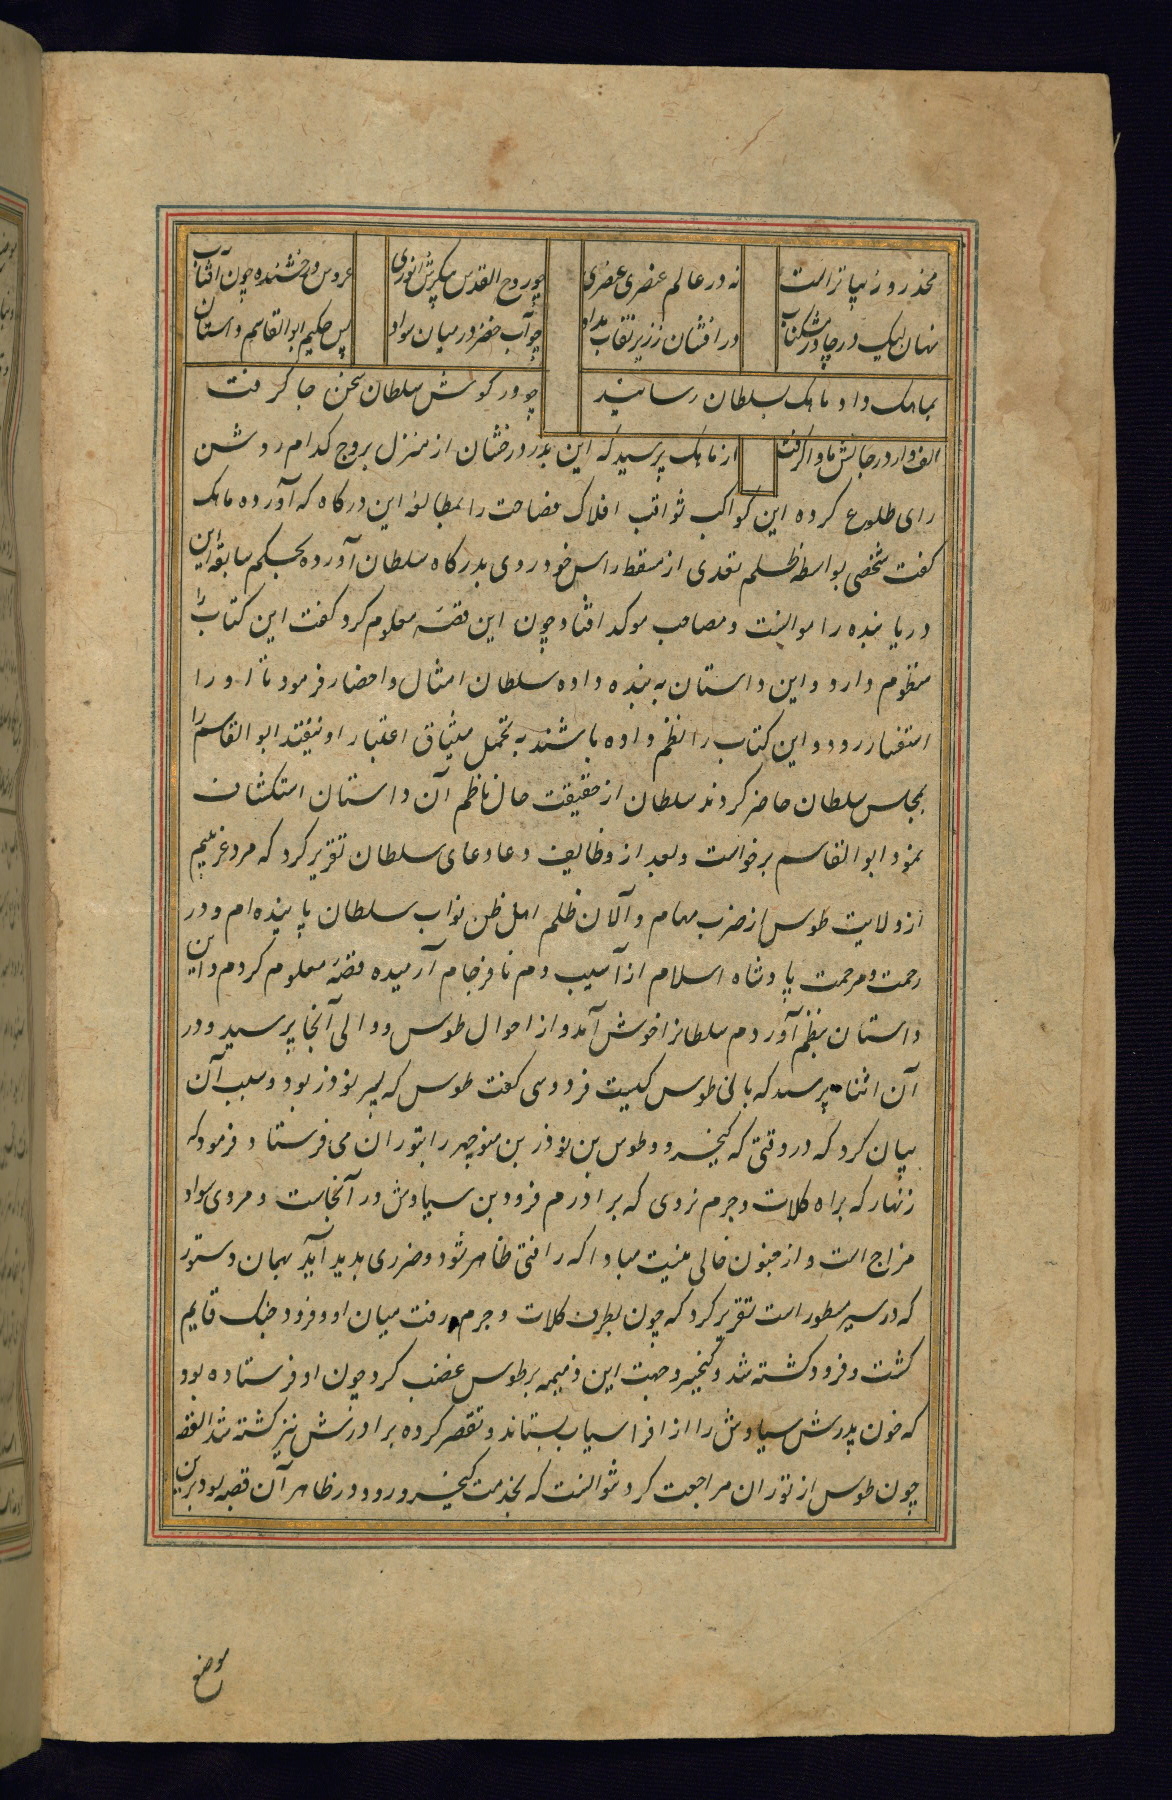 نه در عالم عنصری عنصری چو روح القدس پیکرش انوری عروس درخشنده چون آفتاب
نهان لیک در چادر مشکناب در افشان ز زیر نقاب مداد چو آب خضر در میان سواد پس حکیم ابوالقاسم داستان
بماهک داد ماهک بسلطان رسانید چو در کوش سلطان سخن جا کرفت
الف وار در جانش ماوا کرفت از ماهک پرسید که این بدر درخشان از منزل بروج کدام روشن
رای طلوع کرده این کواکب ثواقب افلاک فصاحت را بمطالعه این درکاه که آورده ماهک
کفت شخصی بواسطه ظلم تعدی از مسقط راس خود روی بدرکاه سلطان آورده بحکم سابقه این
در یا بنده را موانست و مصاحب موکد افتاد چون این قصه معلوم کرد کفت این کتاب را
منظوم دارد و این داستان به بنده داده سلطان امثال و احضار فرمود تا او را
استفسار رود و این کتاب را نظم داده باشند به تحمل میثاق اعتبار او نیفتد ابوالقاسم را
بمجلس سلطان حاضر کردند سلطان از حقیقت حال ناظم آن داستان استکشاف
نمود ابوالقاسم برخواست و بعد از وظایف دعا و عای سلطان تقریر کرد که مرد غریبم
از ولایت طوس از ضرب مهام و آلان ظلم اهل ظن نواب سلطان پا بنده ام و در
رحمت و مرحمت پادشاه اسلام از آسیب دم نافرجام آرمیده قصه معلوم کردم و این
داستان بنظم آوردم سلطانرا خوش آمد و از احوال طوس و والی آنجا پرسید و در
آن اثنا پرسید که بانی طوس کیست فردوسی کفت طوس که پسر نوذر بود و سبب آن
بیان کرد که در وقتی که کیخسرو طوس بن نوذر بن منوچهر را بتوران می فرستاد فرمود که
زنهار که براه کلات و جرم نروی که برادرم فرود بن سیاوش در آنجاست و مردی سواد
مزاج است و از جنون خالی نیست مبادا که رافتی ظاهر شود و ضرری پدید آید بهمان دستور
که در سیر مسطور است تقریر کرد که چون بطرف کلات و جرم رفت میان او و فرود جنک قایم
کشت و فرود کشته شد و کیخسرو جهت این ذمیمه بر طوس غضب کرد چون او فرستاده بود
که خون پدرش سیاوش را از افراسیاب بستاند و تقصیر کرده برادرش نیز کشته شد القصه
چون طوس از توران مراجعت کرد نتوانست که بخدمت کیخسرو رود و در ظاهر آن قصبه بود برین
موضع